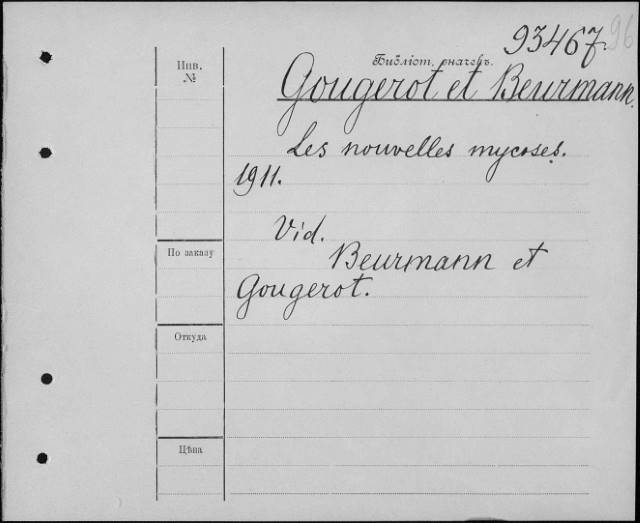 96
93467.
Инв.
№
Библіот. значекъ.
Gougerot et Beurmann.
Les nouvelles mycoses.
1911.
Vid.
По заказу
Beurmann et
Gougerot.
Откуда
Цѣна